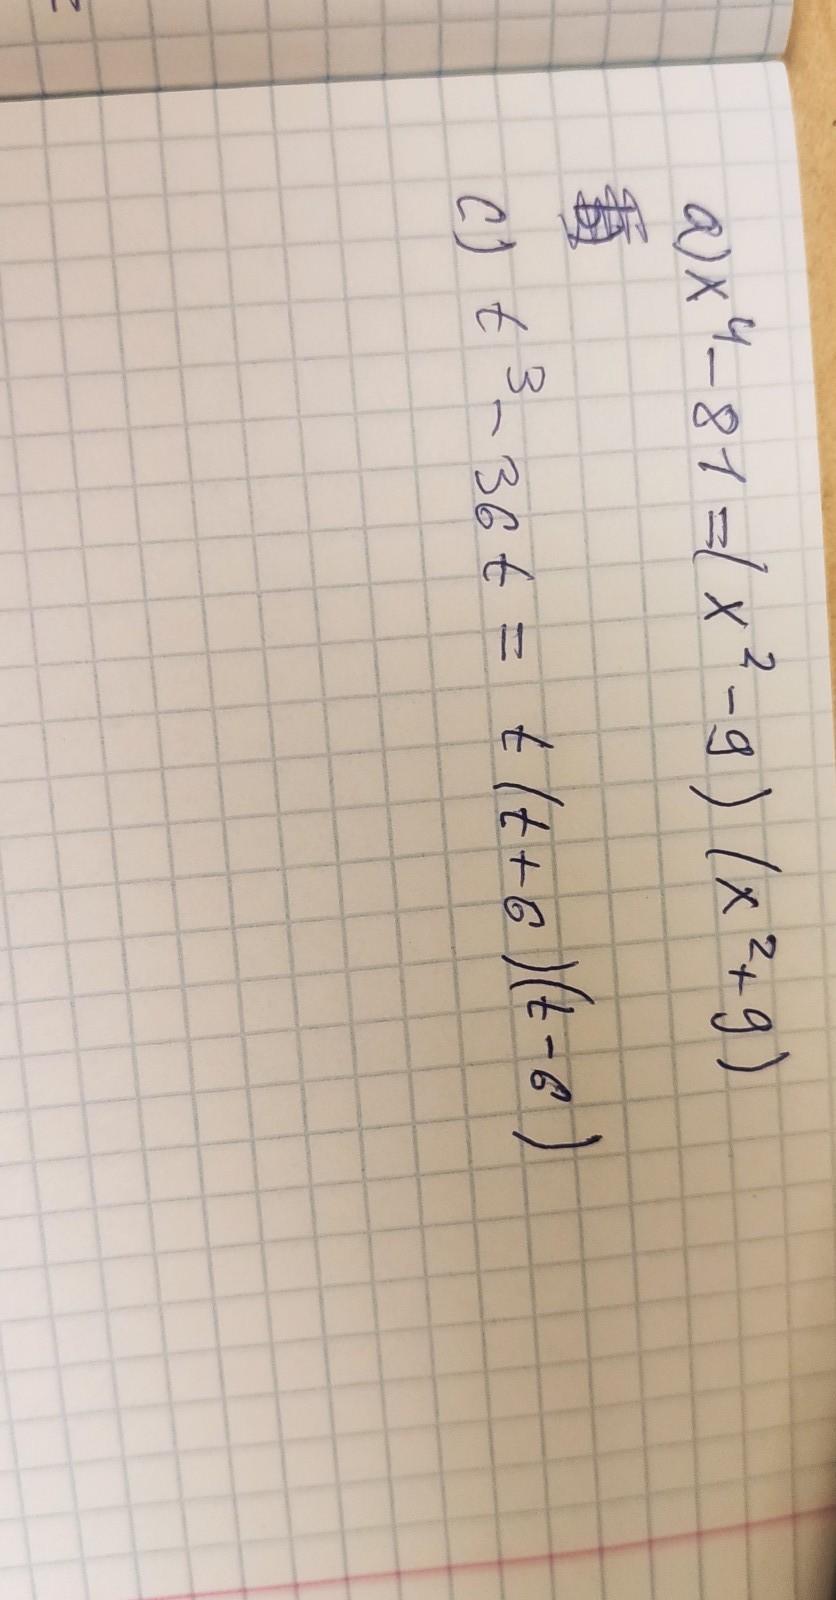 a) x⁴ - 81 = (x² - 9) (x² + 9)
c) t³ - 36t = t(t+6)(t-6)